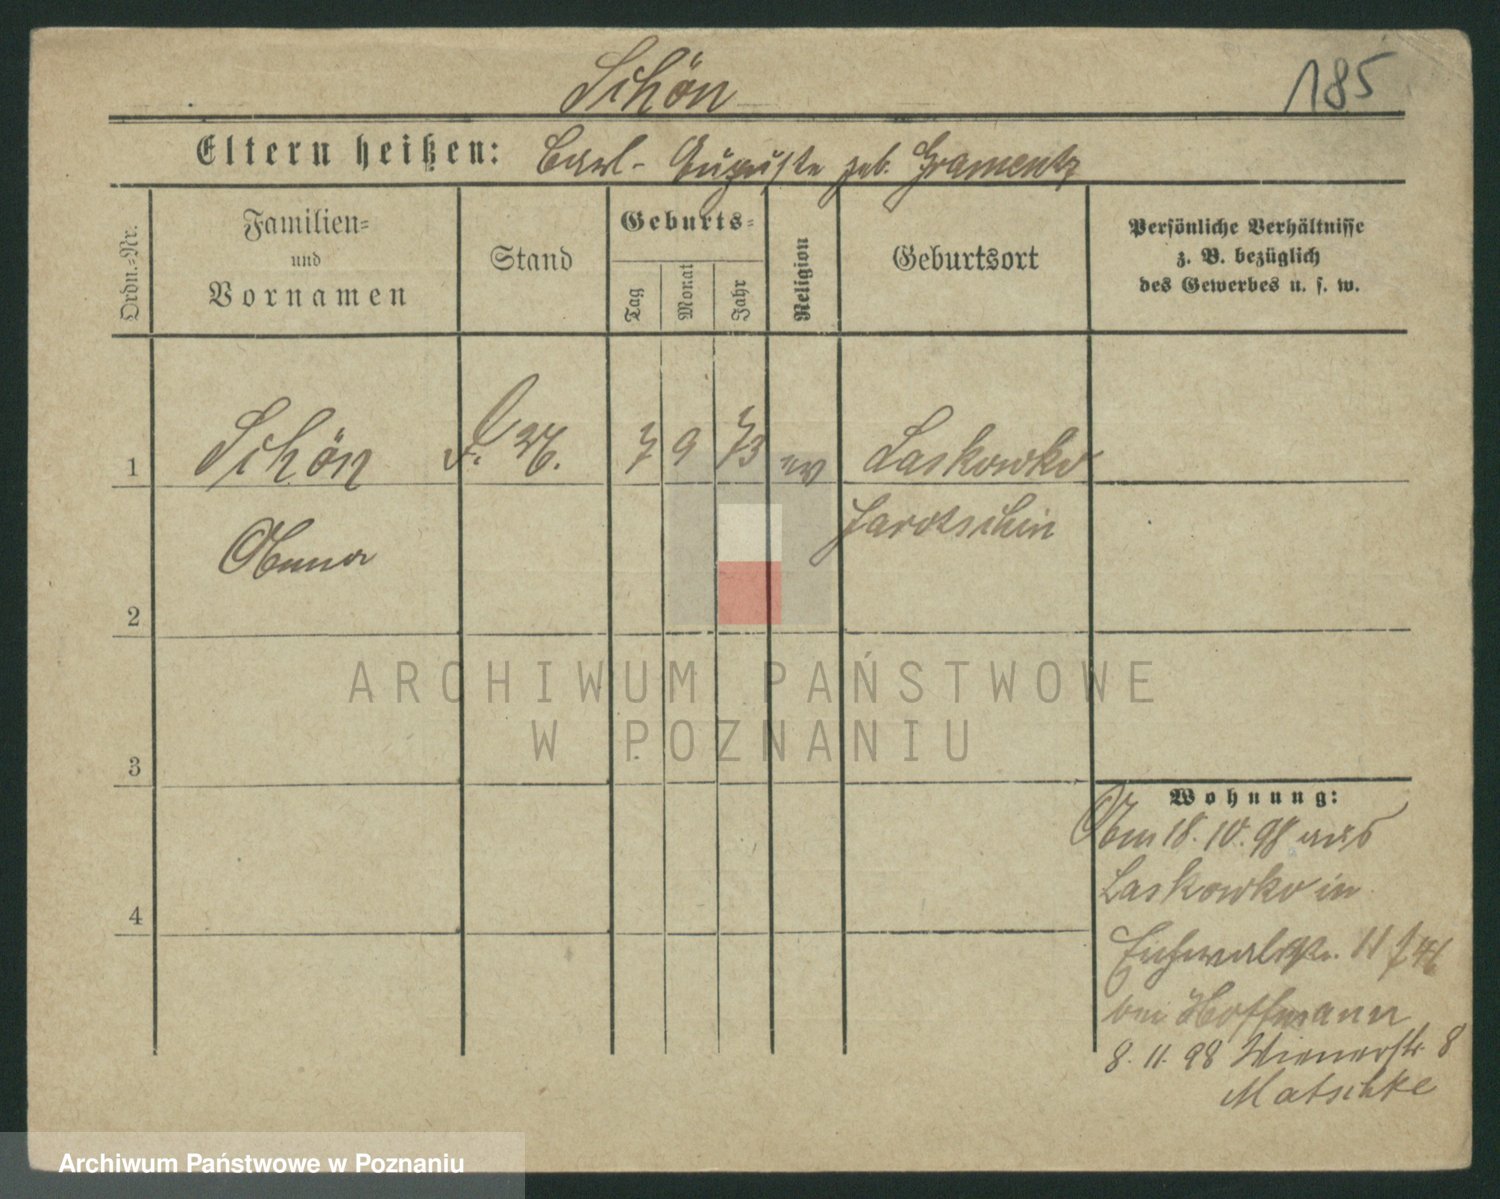 Schön
185
Eltern heißen: Carl - Auguste geb. Gramentz
Ordn.-Nr.
Familien-
und
Vornamen
Stand
Geburts-
Tag
Monat
Jahr
Religion
Geburtsort
Persönliche Verhältnisse
z. B. bezüglich
des Gewerbes u. s. w.
1 Schön 7 9 73 ev Laskowko
Jarotschin
Anna
2
ARCHIWUM PAŃSTWOWE
W POZNANIU
3
Wohnung:
Am 18. 10. 98 aus
Laskowko in
4
Eichwaldstr. 11
bei Hoffmann
8. 11. 98 Wienerstr 8
Matschke
Archiwum Państwowe w Poznaniu